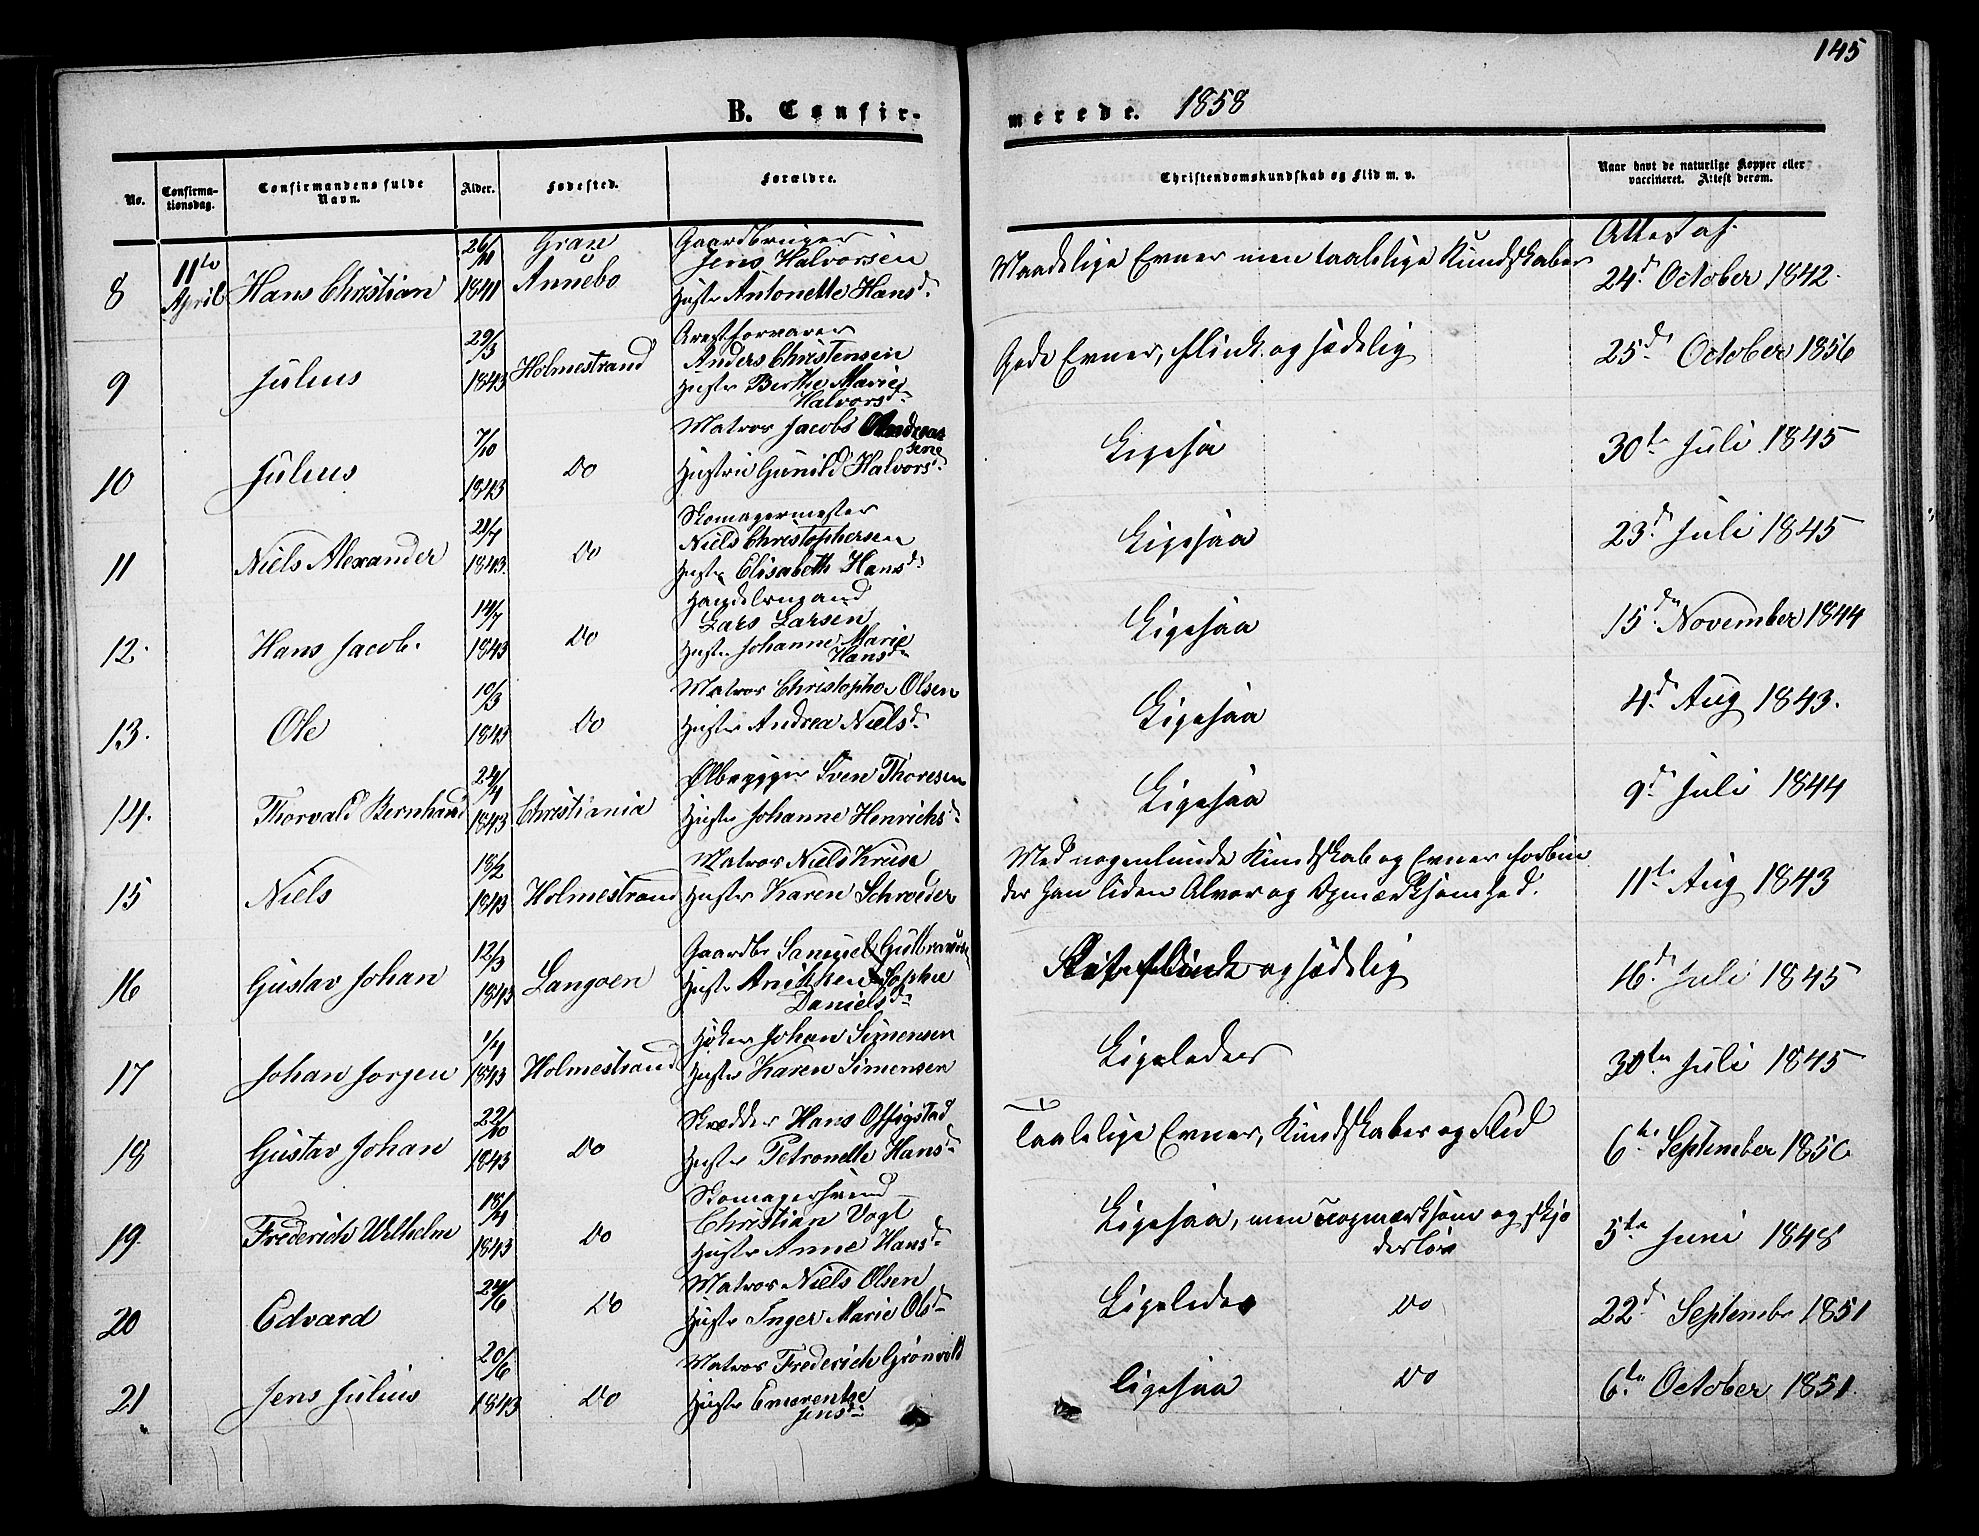 145
B. Confir-
merede. 1858
No.
Confirma-
tionsdag.
Confirmandens fulde
Navn.
Alder.
Fødested.
Forældre.
Christendomskundskab og Flid m. v.
Naar havt de naturlige Kopper eller
vaccineret. Attest derom.
8
11te
April
Hans Christian
1841
Annebo
Gaardbruger
Jens Halvorsen
Hustr Antonette Hansd.
Maadelige Evner men taalelige Kundskaber
Attest af
24d October 1842.
9
Julius
29/3
1843
Holmestrand
Arestforvarer
Anders Christensen
Hustr Berthe Marie
Halvorsd.
Gode Evner, flink og sædelig
25d October 1856
10
Julius
7/10
1843
Do
Matros Jacobs Andreas
sene
Hustru Gunild Halvorsd.
Ligesaa
30te Juli 1845
11
Niels Alexander
1843.
Do
Skomagermester
Niels Christophersen
Hustr Elisabeth Hansd.
Ligesaa
23d Juli 1845
12.
Hans Jacob.
14/7
1843
Do
Handelsmand
Lars Larsen
Hustr Johanne Marie
Hansd.
Ligesaa
15de November 1844
13.
Ole
10/3
1843
Do
Matros Christopher Olsen
Hustr Andrea Nielsd.
Ligesaa
4d Aug 1843.
14.
Thorvald Bernhard
24/4
1843
Christiania
Ølbrygger Sven Thoresen
Hustr Johanne Henrichsd.
Ligesaa
9d Juli 1844
15
Niels
18/2
1843
Holmestrand
Matros Niels Kruse
Hustr Karen Schrøeder
Med nogenlunde Kundskab og Evner forbin
der han liden Alvor og Opmærksomhed.
11te Aug 1843
16
Gustav Johan
12/3
1843
Langøen
Gaardbr Samuel Gulbrands
Hustr Anikken Sophie
Danielsd.
flink og sædelig
16d Juli 1845
17
Johan Jorgen
1/4
1843
Holmestrand
Høker Johan Simensen
Hustr Karen Simensen
Ligeledes
30te Juli 1845
18
Gustav Johan
22/10
1843
Do
Skrædder Hans Offigstad
Hustr Petronelle Hansd.
Taalelige Evner, Kundskaber og Flid
6te September 1850
19.
Frederich Wilhelm
18/4
1843
Do
Skomagersvend
Christian Vogt
Hustr Anne Hansd.
Ligesaa, men uopmærksom og skjø
desløs
5te Juni 1848
20
Edvard
24/6
Do
Matros Niels Olsen
Hustr Inger Marie Olsd.
Ligeledes
Do
22d Septembr 1851
21
Jens Julius
20/6
1843
Do
Matros Frederich Grønvold
Hustr Emerentze
Jensd.
ligesaa
Do
6te October 1851.